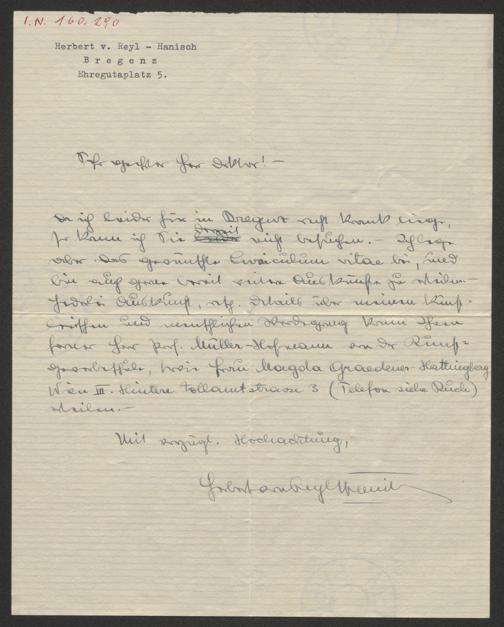 I.N. 160.290
Herbert v. Reyl - Hanisch
B r e g e n z
Ehregutaplatz 5.
Sehr geehrter Herr Doktor! —
da ich leider hier in Bregenz recht krank liege,
so kann ich Sie derzeit nicht besuchen. — Ich lege
aber das gewünschte Curriculum vitae bei, und
bin auch gerne bereit weitere Auskünfte zu erteilen. —
Jederlei Auskunft, etz. Details über meinen künst-
lerischen und menschlichen Werdegang kann Ihnen
ferner Herr Prof. Müller-Hofmann an der Kunst-
gewerbeschule, sowie Frau Magda Graedener-Hattingberg
Wien III. Hintere Zollamtstrasse 3 (Telefon siehe Buch)
erteilen. —
Mit vorzügl. Hochachtung,
Herbert von Reyl Hanisch